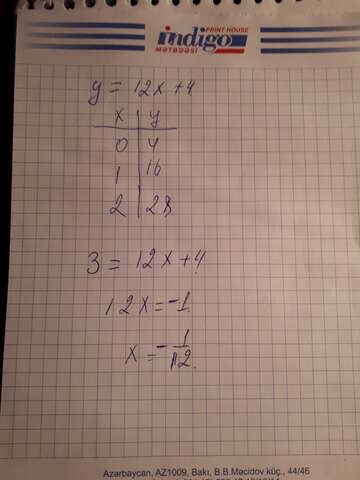 PRINT HOUSE
indigo
MƏTBƏƏSİ
y = 12x + 4
x | y
0 | 4
1 | 16
2 | 28
3 = 12x + 4
12x = -1
x = -1/12.
Azərbaycan, AZ1009, Bakı, B.B.Məcidov küç., 44/46